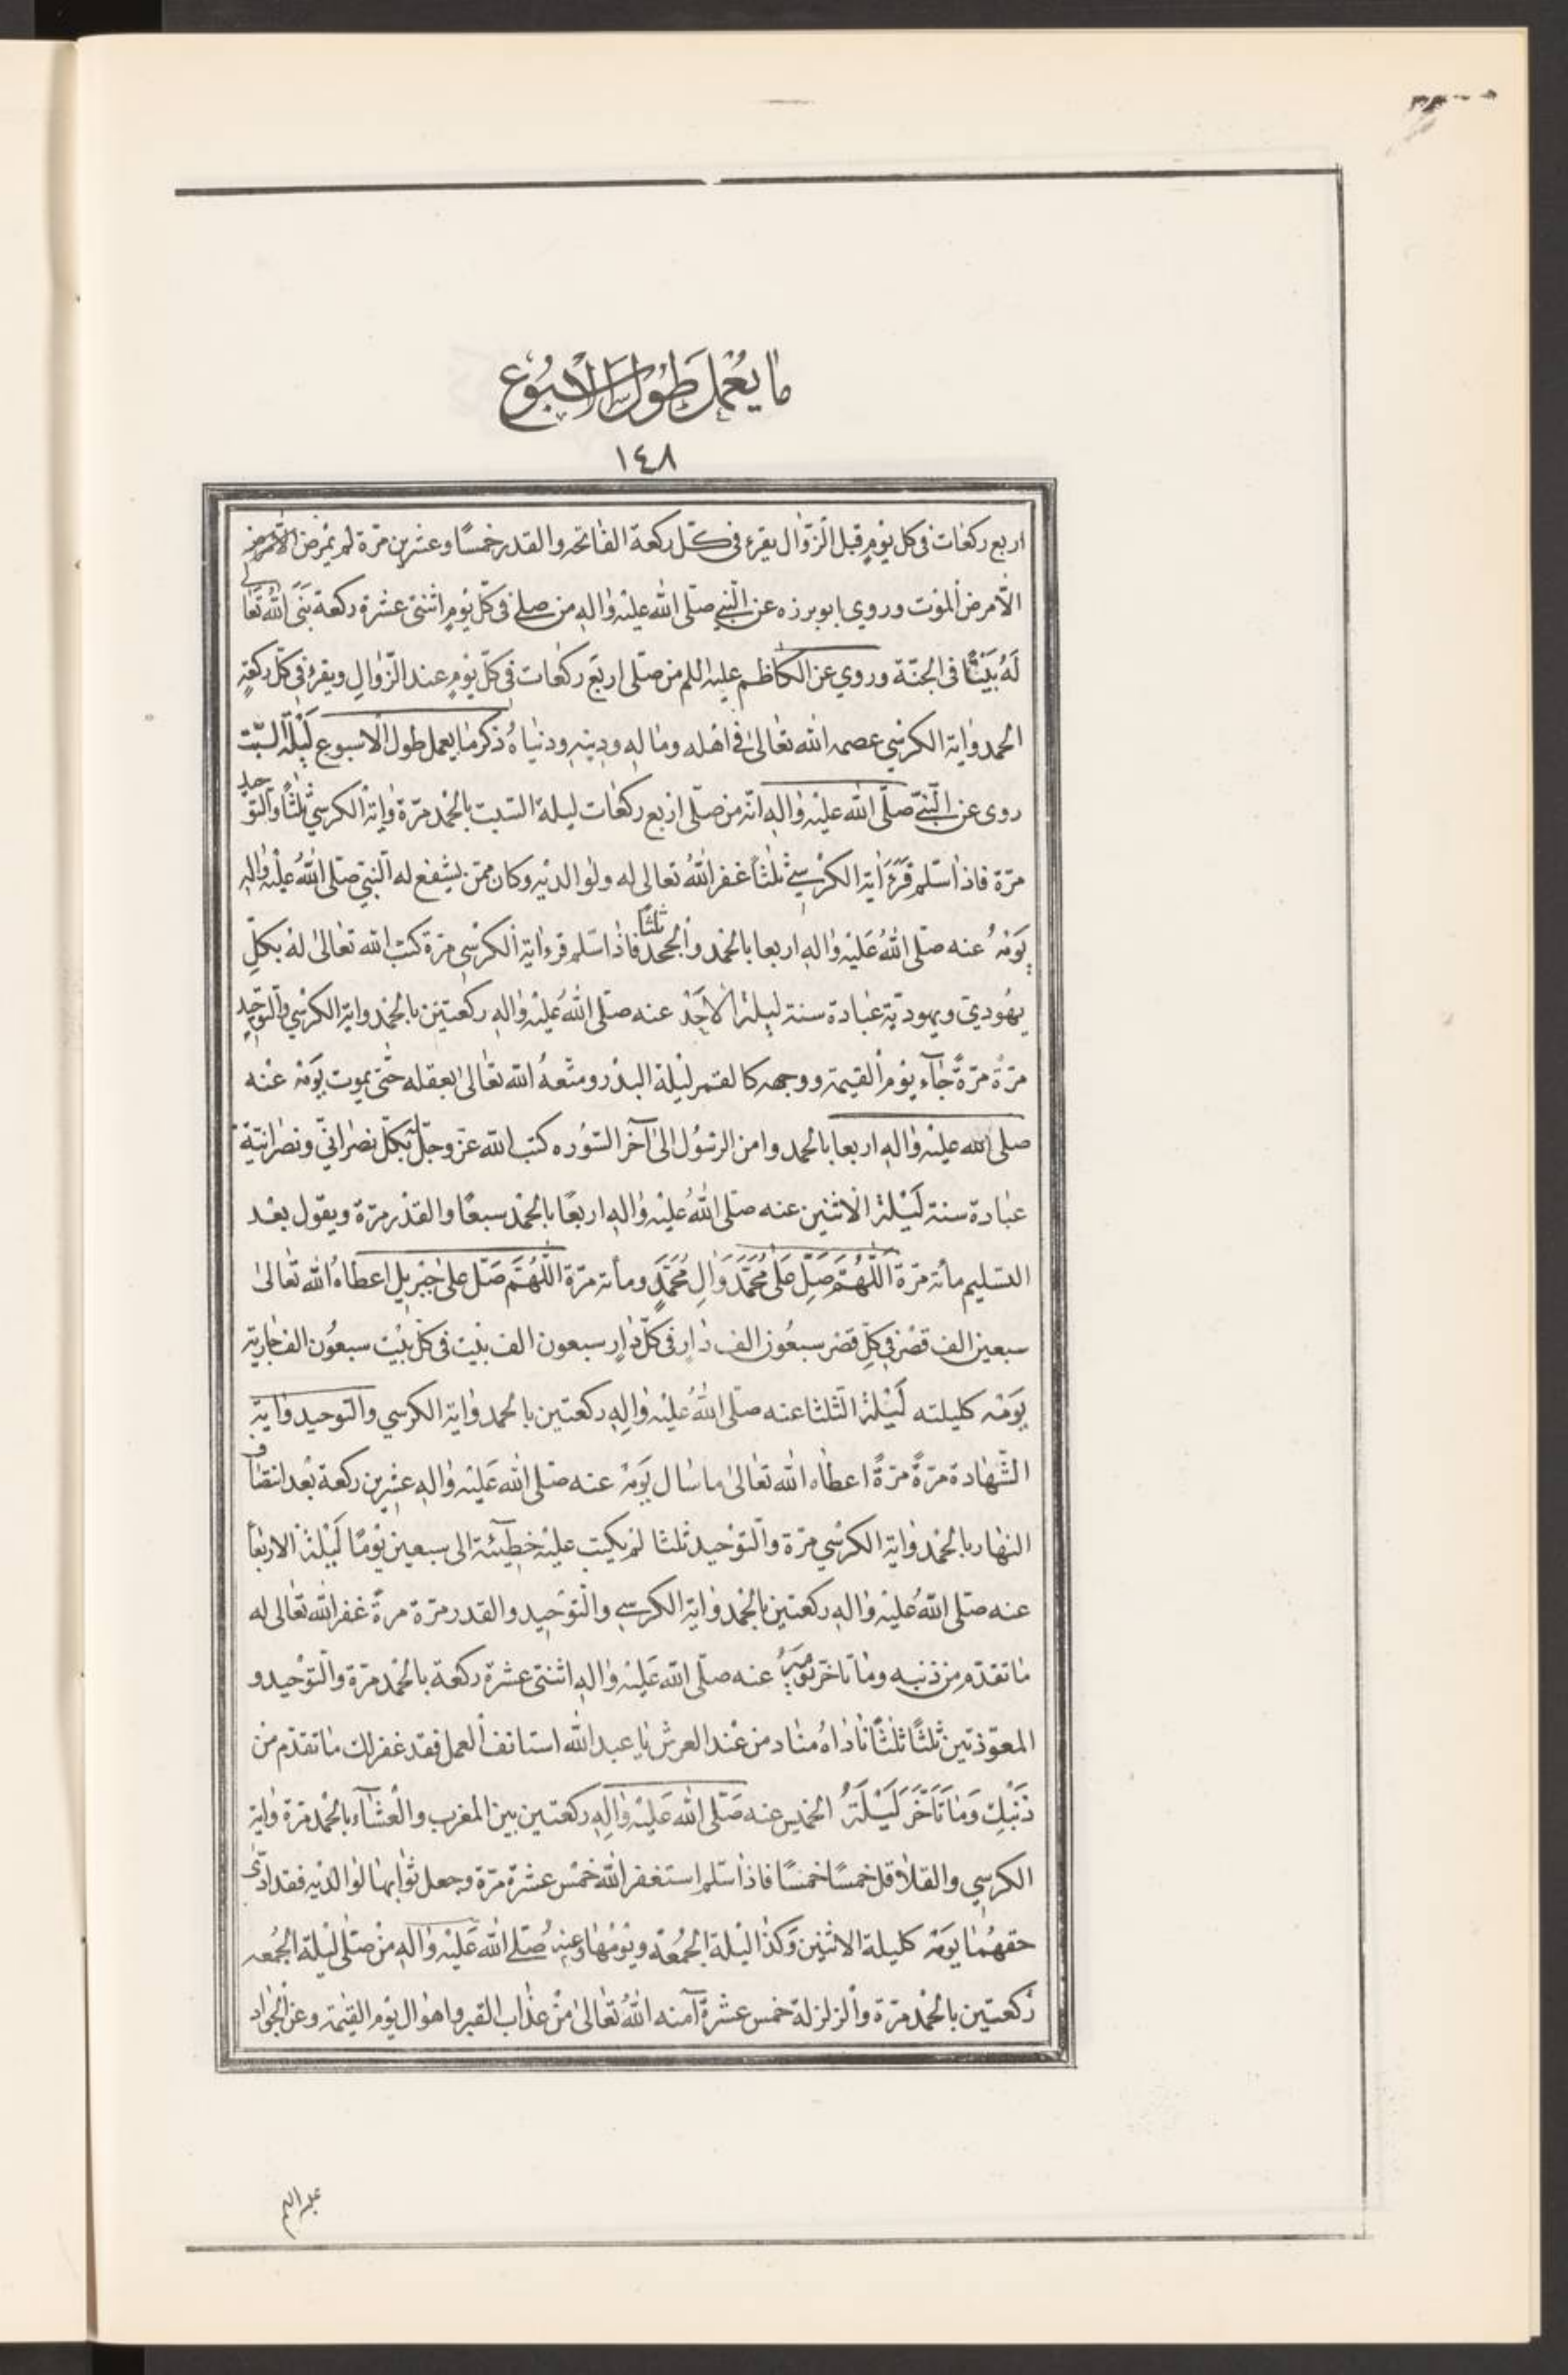 ما يُعمل طول الأسبوع
١٤٨
اربع ركعات فى كل يوم قبل الزّوال يقرء فى كلّ ركعة الفاتحه والقدر خمسًا وعشرين مرّة لم يمرض الّا مرض
الّا مرض الموت وروي ابو برزه عن النّبي صلّى الله عليه واله من صلى فى كلّ يوم اثنتى عشرة ركعة بَنَى اللهُ تعالى
لَهُ بَيْتًا فى الجنّة وروي عن الكاظم عليه اللم من صلّى اربَع ركعات فى كلّ يوم عند الزّوالِ ويقرء فى كلّ ركعةٍ
الحمد واية الكرسي عصمه الله تعالى فى اهله وماله ودينه ودنياه ذكر ما يعمل طول الاسبوع لَيْلَة السّبت
روى عن النّبيّ صلّى الله عليه واله انّه من صلّى اربع ركعات ليلة السّبت بالحمد مرّة واية الكرسيّ ثلثًا والتّوحيد
مرّة فاذا سلّم قرَءَ اية الكرسي ثلثًا غفر اللهُ تعالى له ولوالديه وكان ممّن يشفع له النّبيّ صلّى اللهُ عليه واله
يَومه عنه صلّى اللهُ عَليه واله اربعا بالحمد والجحد ثلثًا فاذا سلّم قرء اية الكرسي مرّة كتب الله تعالى له بكلّ
يهُوديّ ويهوديّة عبادة سنة ليلة الاحَد عنه صلّى اللهُ عليه واله ركعتين بالحمد واية الكرسي والتّوحيد
مرّة مرّةً جآء يوم القيمة ووجهه كالقمر ليلة البدر ومتّعهُ الله تعالى بعقله حتّى يموت يَومه عنه
صلى الله عليه واله اربعا بالحمد وامن الرسُول الى آخر السّوره كتب الله عزّ وجلّ بكلّ نصرانيّ ونصرانيّة
عبادة سنة لَيْلة الاثنين عنه صلّى اللهُ عليه واله اربعًا بالحمد سبعًا والقدر مرّة ويقول بعد
التسليم مأئة مرّة اَللّهُمَّ صَلِّ عَلى مُحَمَّدٍ وَالِ مُحَمَّدٍ ومأئة مرّة اَللّهُمَّ صَلّ على جبريل اعطاهُ الله تعالى
سبعين الف قصْر فى كلّ قصر سبعُون الف دار فى كلّ دارٍ سبعون الف بيت فى كلّ بيت سبعُون الف جارية
يَومه كليلته لَيْلة الثّلثا عنه صلّى اللهُ عليه والِه ركعتين بالحمد واية الكرسي والتوحيد واية
الشّهادة مرّةً مرّةً اعطاه الله تعالى ما سال يَومه عنه صلّى الله عَليه واله عشرين ركعة بعد انتصاف
النهار بالحمد واية الكرسي مرّة والتّوحيد ثلثا لم يكتب عليه خطيئة الى سبعين يومًا لَيْلة الاربعآ
عنه صلّى اللهُ عليه واله ركعتين بالحمد واية الكرسي والتّوحيد والقدر مرّة مرةً غفر الله تعالى له
ما تقدّم من ذنبه وما تاخّر يَومه عنه صلّى الله عَليه واله اثنتى عشرة ركعة بالحمد مرّة والتّوحيد و
المعوّذتين ثلثًا ثلثًا ناداهُ مناد من عند العرش يا عبد الله استانف العمل فقد غفر لك ما تقدّم من
ذَنْبِك وَمَا تَاَخَّرَ لَيْلَةُ الخميس عنه صَلّى الله عَليه والِه ركعتين بين المغرب والعشآء بالحمد مرّة واية
الكرسي والقلاقل خمسًا خمسًا فاذا سلّم استغفر الله خمس عشرة مرّة وجعل ثوابها لوالديه فقد ادّى
حقهُما يَومه كليلة الاثنين وَكذا ليلة الجمُعة ويَومُها وعنه صلّى الله عَليه واله من صلّى ليلة الجُمعه
ركعتين بالحمد مرّة والزلزلة خمس عشرةً آمنه اللهُ تعالى من عذاب القبر واهوال يَوم القيمة وعن الجواد
عليه اللم